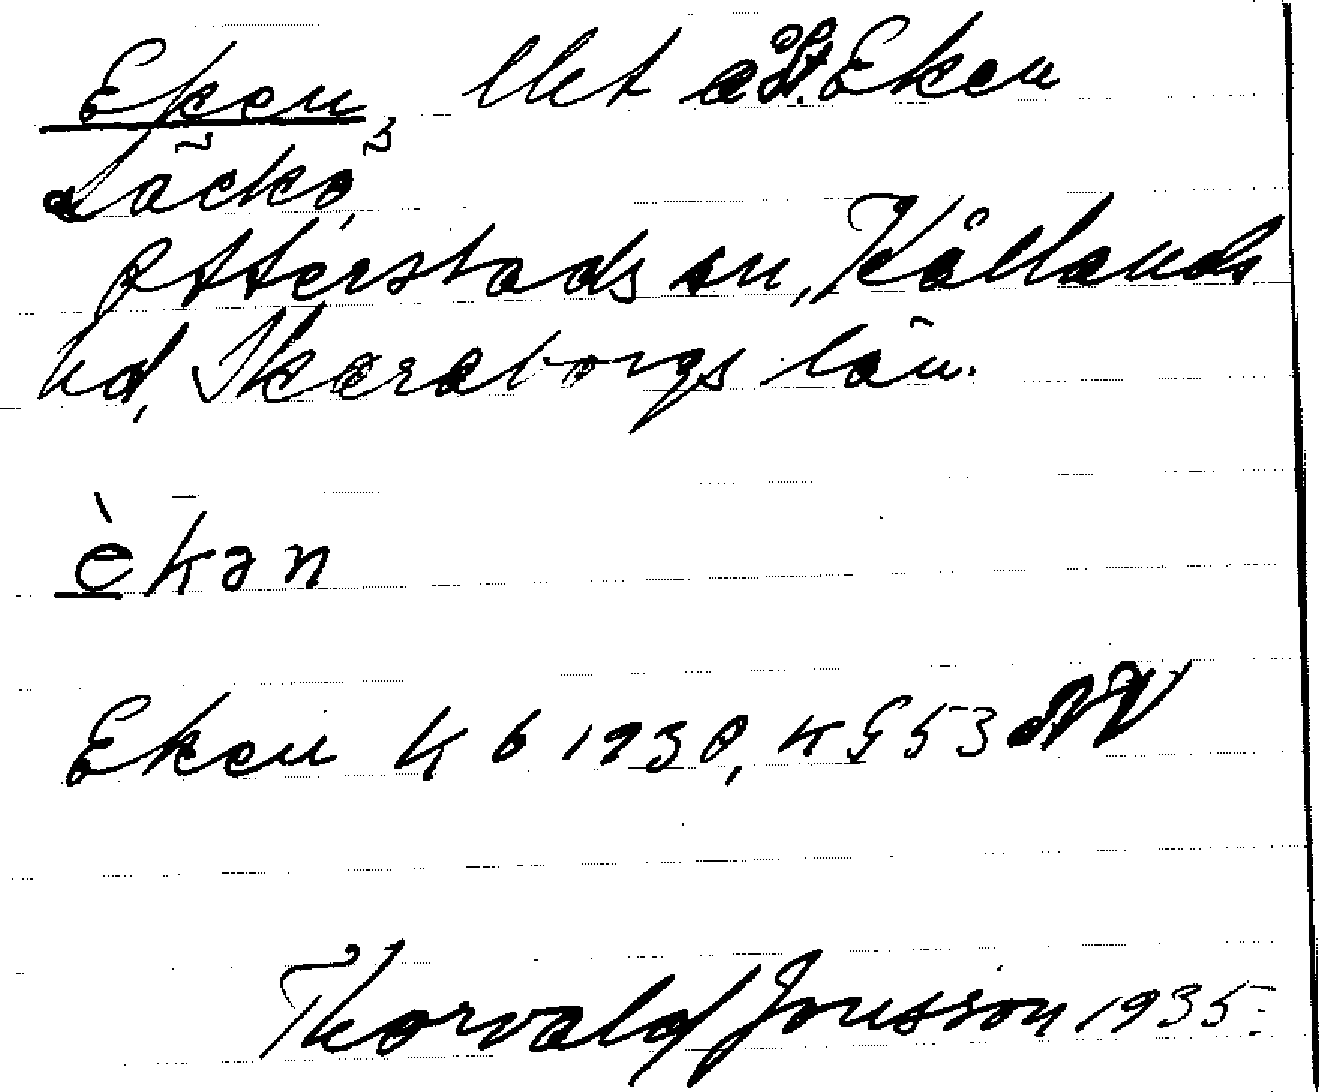 Eken, lht öst. Eken
Läckö,
Otterstads sn, Kållands
hd, Skaraborgs län.
èkən
Eken K 6 1930, KG 53
Thorvald Jonsson 1935.